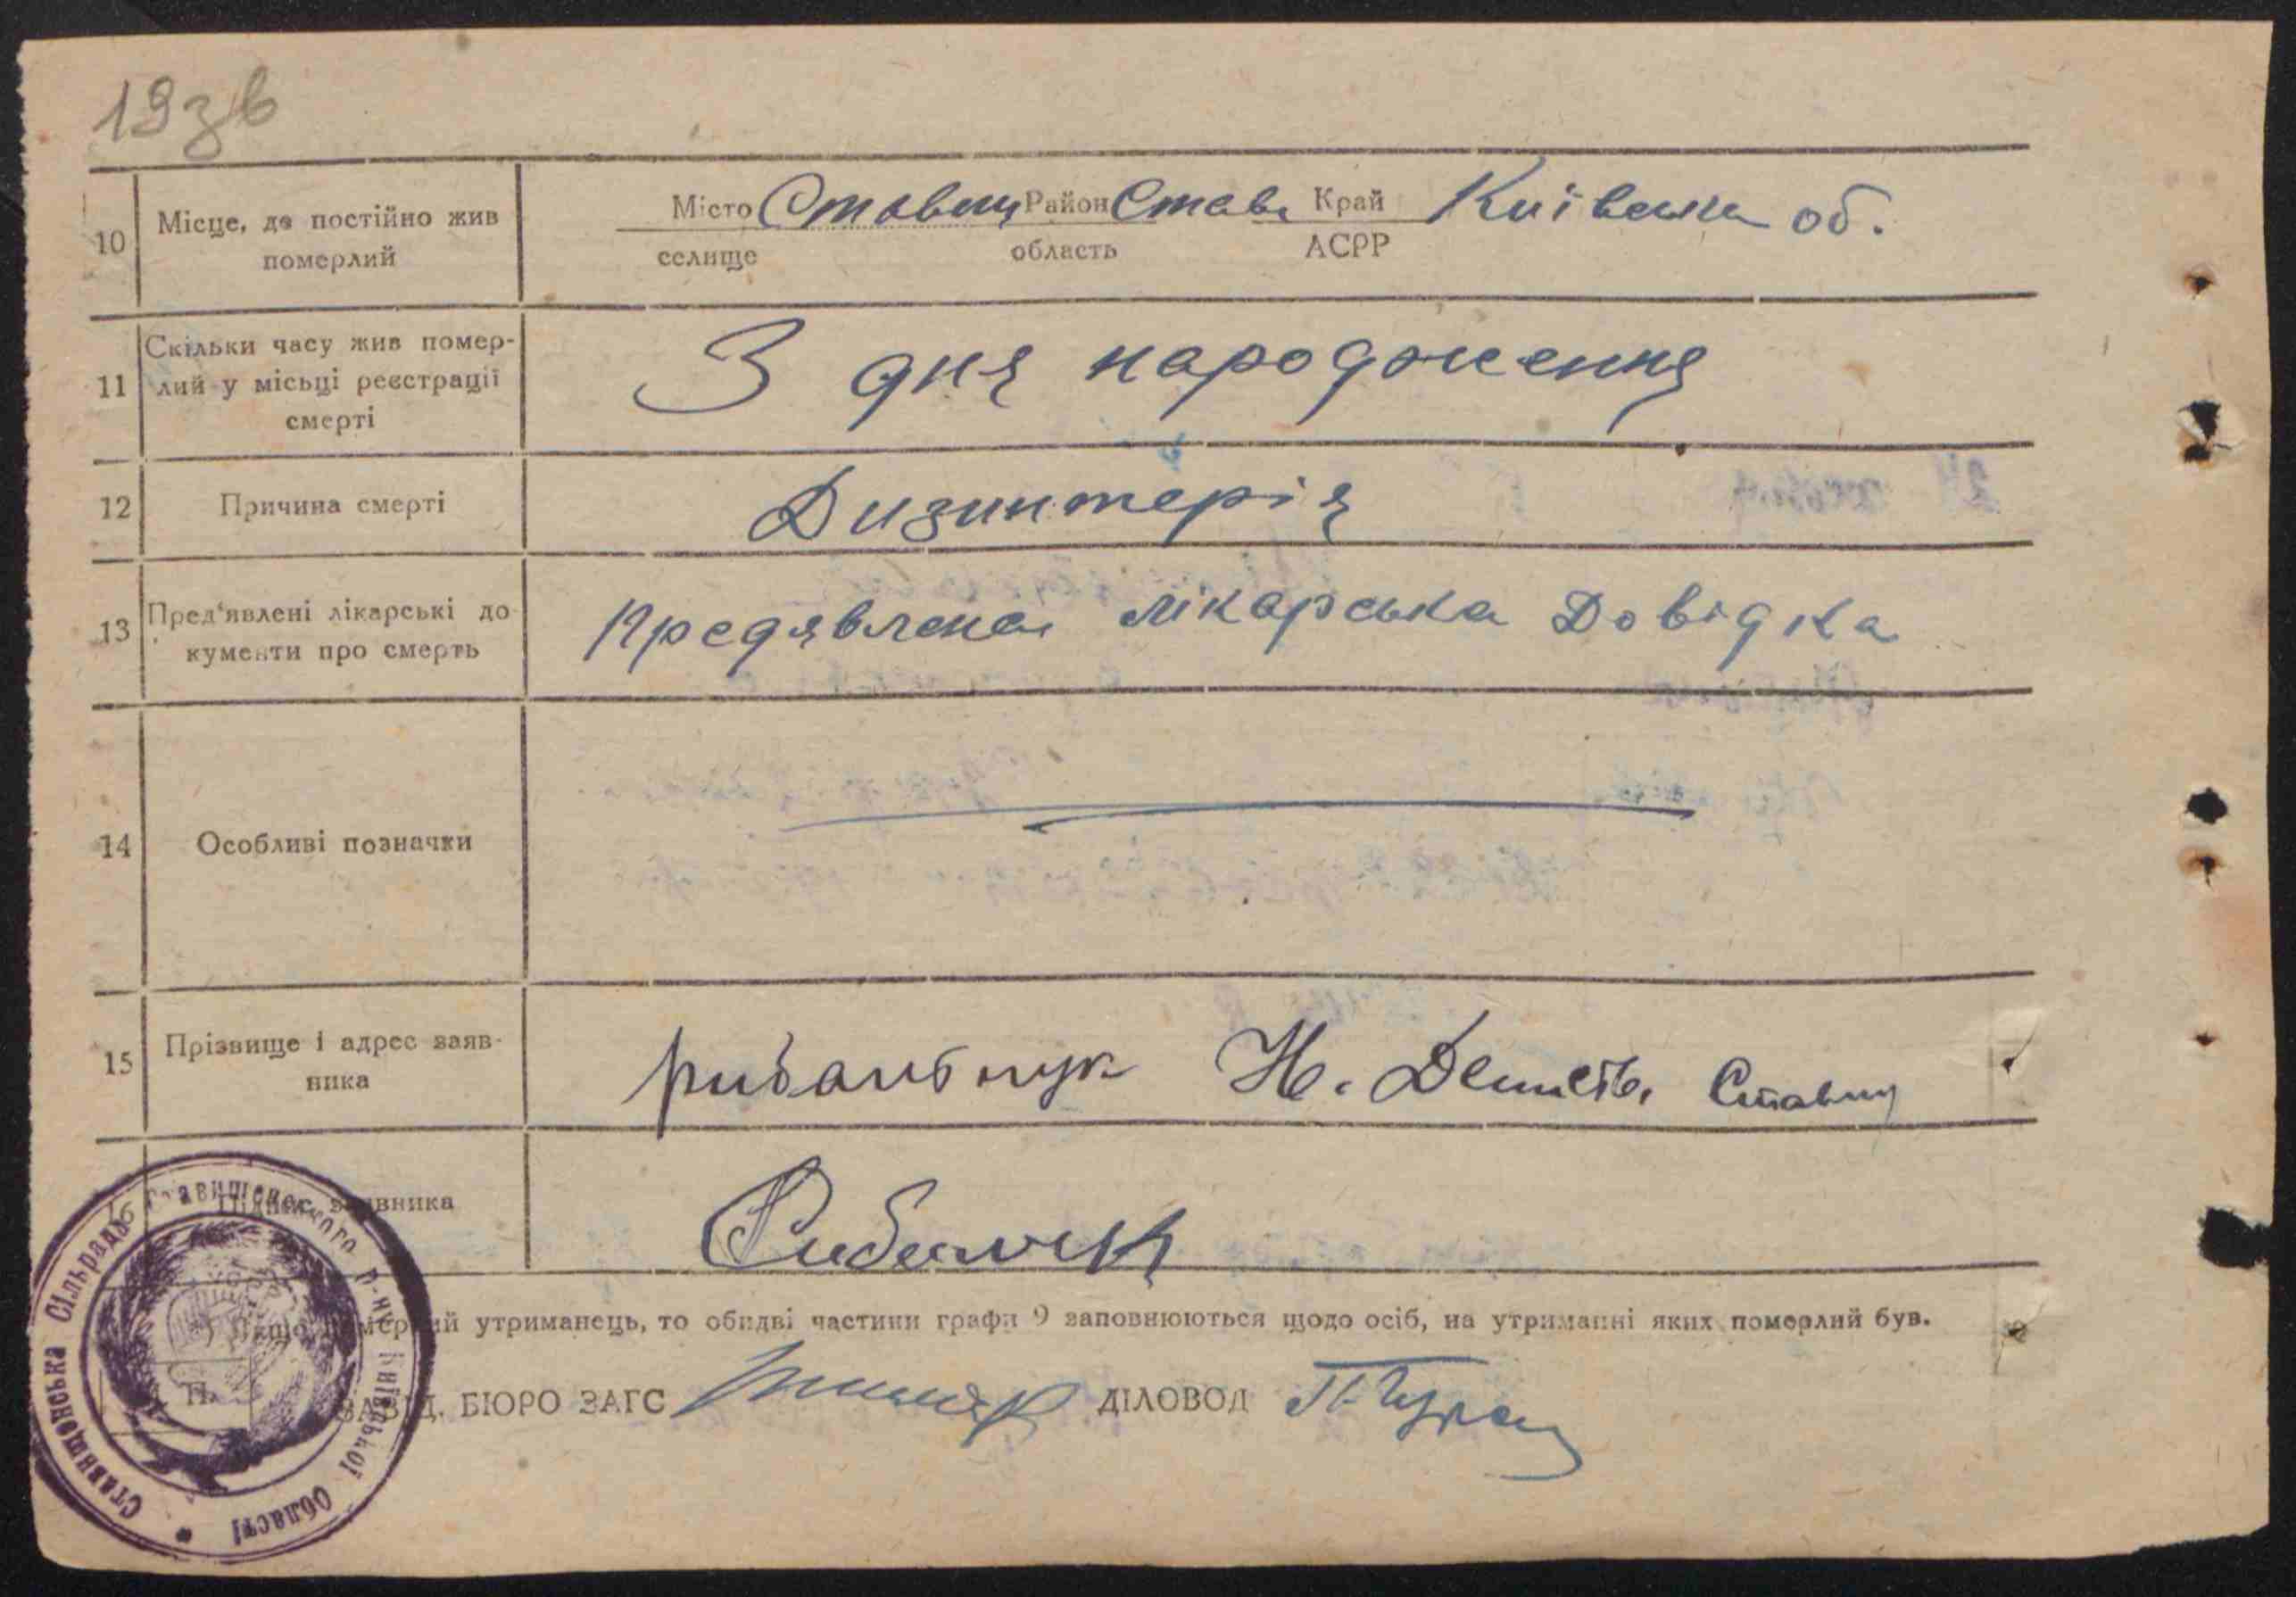 19зв
10 Місце, де постійно жив померлий
Місто Ставищ Район Став. Край Київська об.
селище область АСРР
11 Скільки часу жив помер-
лий у місьці реєстрації
смерті
З дня народження
12 Причина смерті Дизинтерія
13 Пред'явлені лікарські до-
кументи про смерть
Предявлена лікарська довідка
14 Особливі позначки
15 Прізвище і адрес заяв-
ника
Ставищ
16 Підпис заявника
*) Якщо померлий утриманець, то обидві частини графи 9 заповнюються щодо осіб, на утриманні яких померлий був.
ЗАВІД. БЮРО ЗАГС ДІЛОВОД
Ставищенська Сільрада Ставищенського р-ну Київської Області